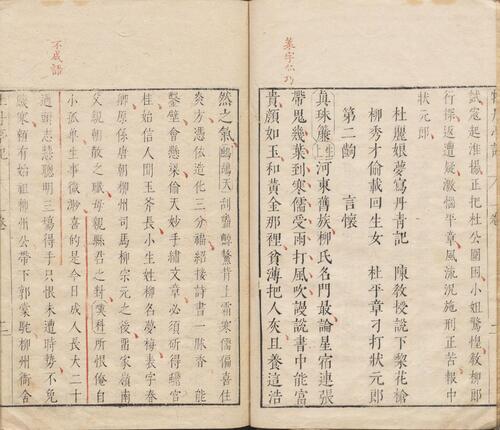 試寇起淮揚正把杜公圍困小姐驚惶教柳郎
行探返遭疑激惱平章風流况施刑正苦報中
狀元郎
杜麗娘夢寫丹青記 陳教授說下梨花槍
柳秀才偷載回生女 杜平章刁打狀元郎
第二齣 言懷
真珠簾生上河東舊族柳氏名門最論星宿連張
帶鬼幾葉到寒儒受雨打風吹謾說書中能富
貴顏如玉和黃金那裡貧薄把人灰且養這浩
然之氣鷓鴣天刮盡鯨鰲背上霜寒儒偏喜住
炎方憑依造化三分福紹接詩書一脉香 能
鑿壁會懸梁偷天妙手繡文章必須斫得蟾宮
桂始信人間玉斧長小生姓柳名夢梅表字春
卿原係唐朝柳州司馬柳宗元之後留家嶺南
父親朝散之職母親縣君之封嘆科所恨俺自
小孤單生事微渺喜的是今日成人長大二十
過頭志慧聰明三塲得手只恨未遭時勢不免
饑寒賴有始祖柳州公帶下郭槖駝柳州衙舍
不成語